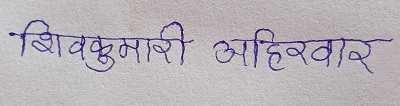 शिवकुमारी अहिरवार